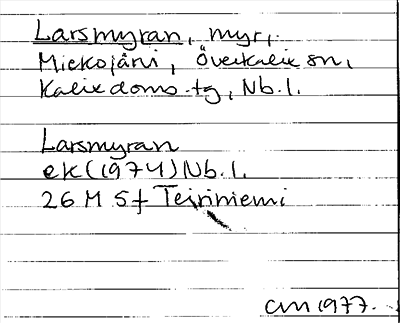 Larsmyran, myr,
Miekojärvi, Överkalix sn,
Kalix doms.tg, Nb.l.
Larsmyran
ek (1974) Nb.l.
26 M 5f Teiriniemi
CM 1977.